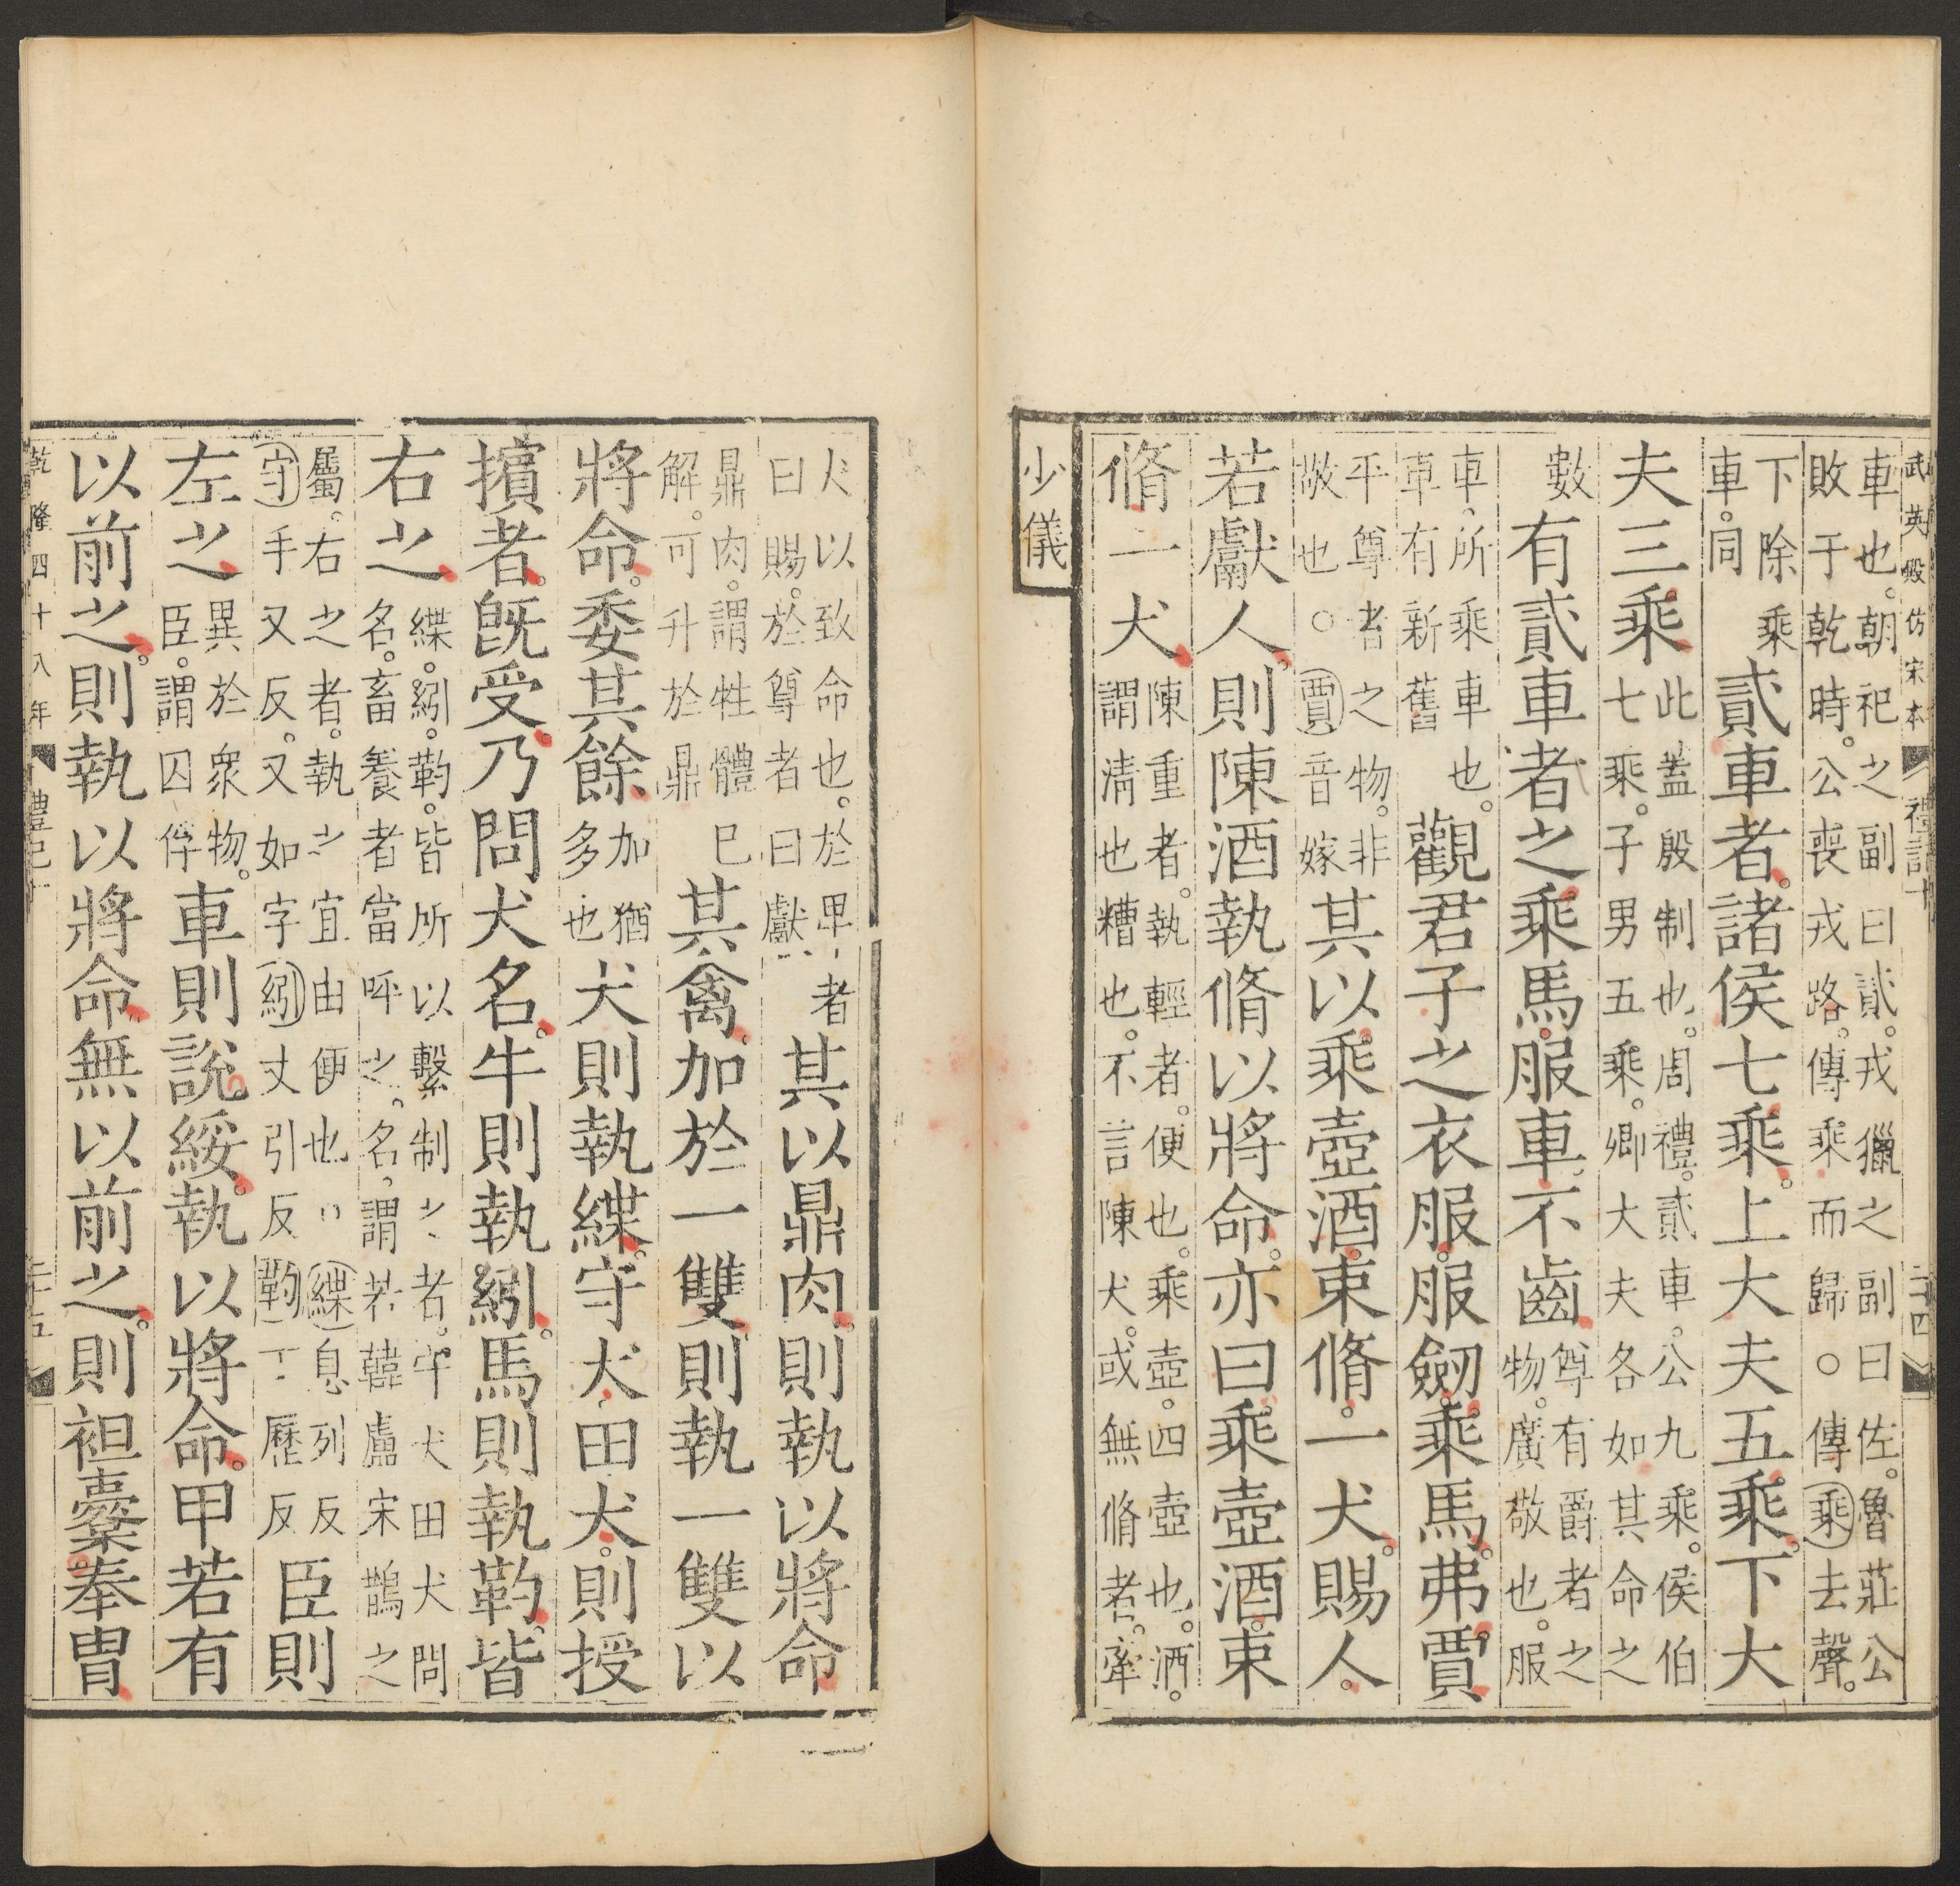 武英殿仿宋本 禮記十 二十四
車也。朝祀之副曰貳。戎獵之副曰佐。魯莊公
敗于乾時。公喪戎路。傳乘而歸○傳乘去聲。
下除乘
車。同
貳車者。諸侯七乘。上大夫五乘。下大
夫三乘
此蓋殷制也。周禮。貳車。公九乘。侯伯
七乘。子男五乘。卿大夫各如其命之
數
有貳車者之乘馬。服車。不齒
尊有爵者之
物。廣敬也。服
車。所乘車也。
車有新舊
觀君子之衣服。服劒。乘馬。弗賈
平尊者之物。非
敬也。○賈音嫁
其以乘壺酒。束脩。一犬。賜人。
若獻人。則陳酒執脩以將命。亦曰乘壺酒。束
脩一犬。
陳重者。執輕者。便也。乘壺。四壺也。酒。
謂清也糟也。不言陳犬。或無脩者。牽
少儀
犬以致命也。於卑者
曰賜。於尊者曰獻
其以鼎肉。則執以將命
鼎肉。謂牲體巳
解。可升於鼎
其禽。加於一雙。則執一雙以
將命。委其餘。
加猶
多也
犬則執緤。守犬田犬。則授
擯者。旣受。乃問犬名。牛則執紖。馬則執靮。皆
右之
緤。紖。靮。皆所以繫制之者。守犬田犬問
名。畜養者當呼之。名。謂若韓盧宋鵲之
屬。右之者。執之宜由便也○緤息列反
守手又反。又如字紖丈引反靮丁歷反
臣則
左之
異於衆物。
臣。謂囚俘
車則說綏。執以將命。甲若有
以前之。則執以將命。無以前之。則袒櫜奉冑
乾隆四十八年 禮記十 二十五